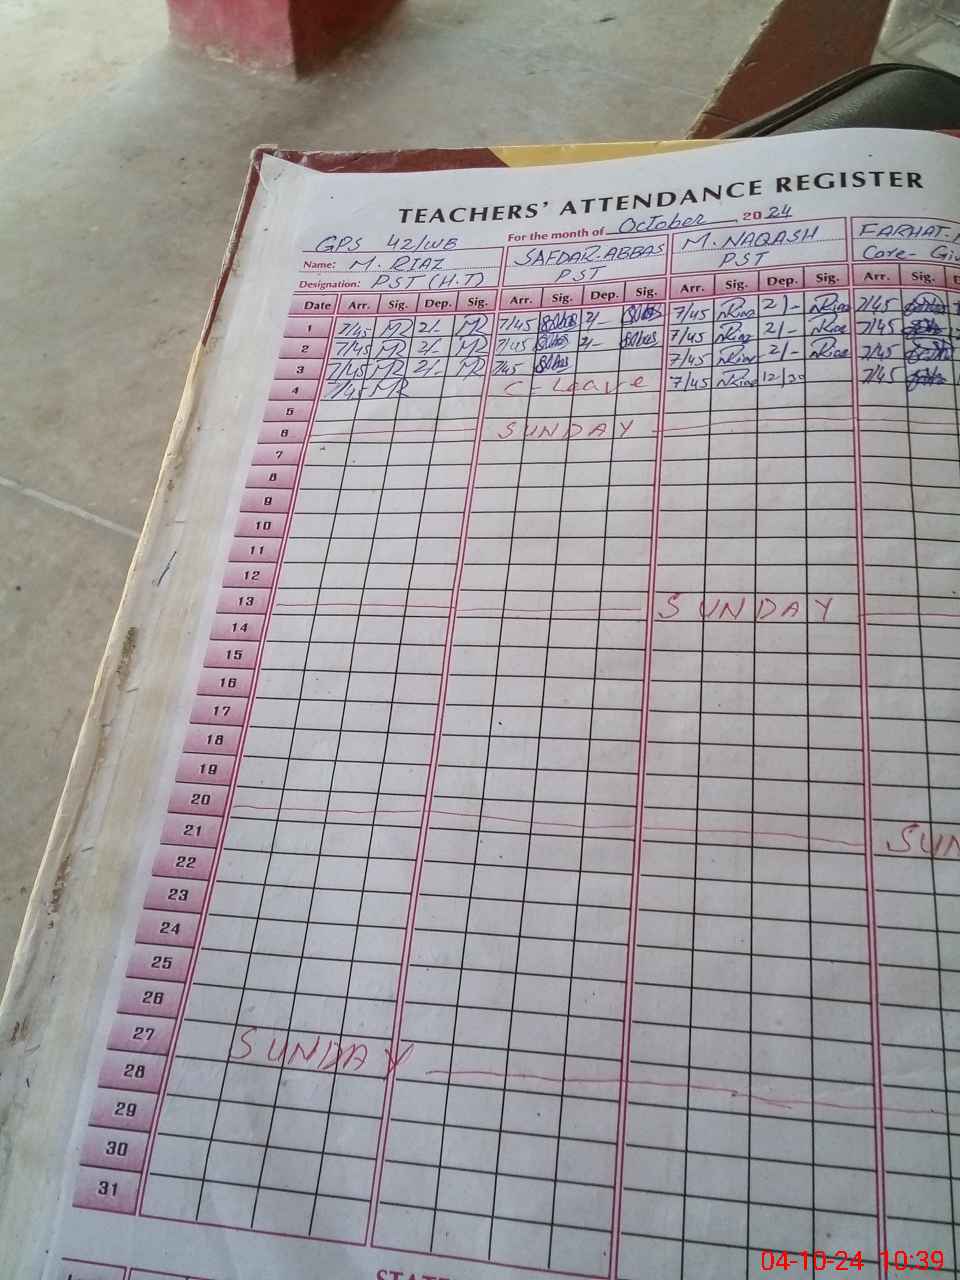 TEACHERS' ATTENDANCE REGISTER
For the month of October 2024
GPS 42/WB
Name: M. RIAZ SAFDAR. ABBAS M. NAQASH FARHAT.
Designation: PST (H.T) PST PST Care- Giv
Date Arr. Sig. Dep. Sig. Arr. Sig. Dep. Sig. Arr. Sig. Dep. Sig. Arr. Sig.
1 7/45 MR 2/- MR 7/45 2/- 7/45 2/- 7/45
2 7/45 MR 2/- MR 7/45 2/- 7/45 2/- 7/45
3 7/45 MR 2/- MR 7/45 7/45 2/- 7/45
4 7/45 MR C-Leave 7/45 12/30 7/45
5
6 SUNDAY
7
8
9
10
11
12
13 SUNDAY
14
15
16
17
18
19
20 SUN
21
22
23
24
25
26
27 SUNDAY
28
29
30
31
04-10-24 10:39